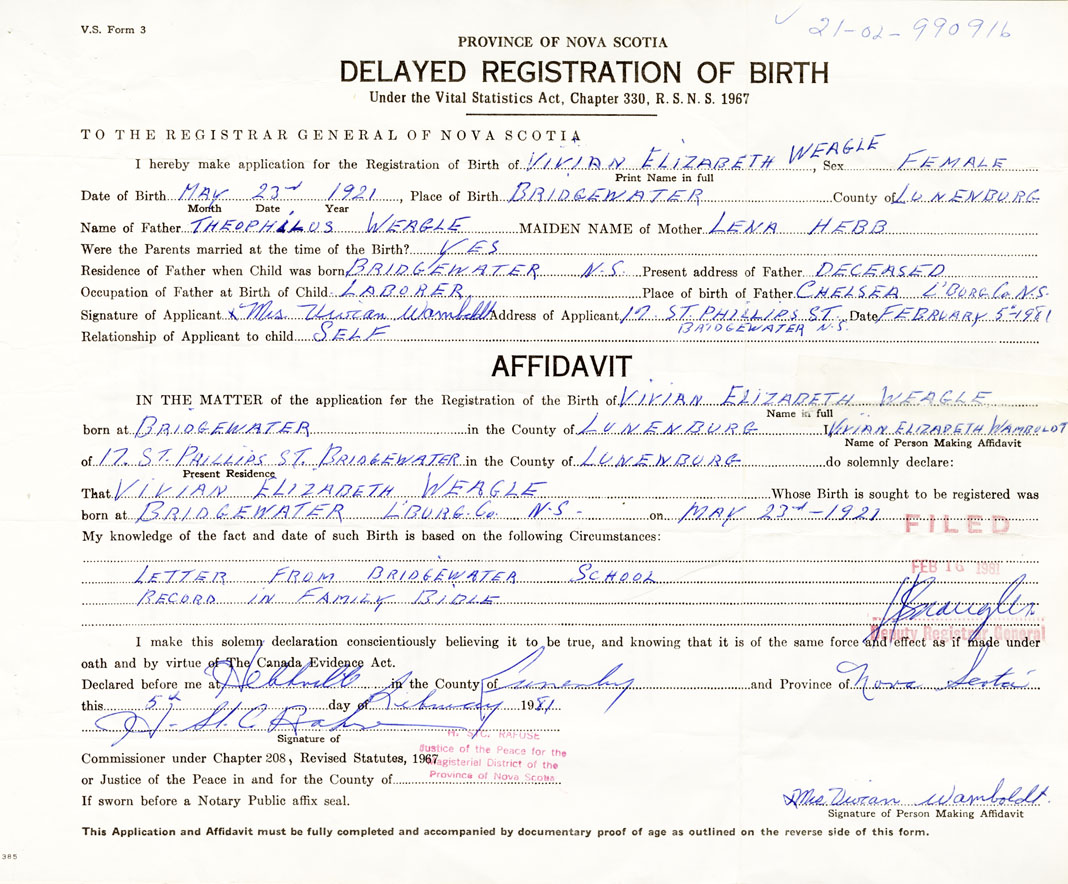 V.S. Form 3
21-02-990916
PROVINCE OF NOVA SCOTIA
DELAYED REGISTRATION OF BIRTH
Under the Vital Statistics Act, Chapter 330, R.S.N.S. 1967
TO THE REGISTRAR GENERAL OF NOVA SCOTIA
I hereby make application for the Registration of Birth of VIVIAN ELIZABETH WEAGLE, Sex FEMALE
Print Name in full
Date of Birth MAY 23rd 1921, Place of Birth BRIDGEWATER County of LUNENBURG
Month Date Year
Name of Father THEOPHILUS WEAGLE MAIDEN NAME of Mother LENA HEBB
Were the Parents married at the time of the Birth? YES
Residence of Father when Child was born BRIDGEWATER N.S. Present address of Father DECEASED
Occupation of Father at Birth of Child LABORER Place of birth of Father CHELSEA L'BURG. Co. N.S.
Signature of Applicant x Mrs Vivian Wamboldt Address of Applicant 17 ST. PHILLIPS ST. Date FEBRUARY 5-1981
BRIDGEWATER N.S.
Relationship of Applicant to child SELF
AFFIDAVIT
IN THE MATTER of the application for the Registration of the Birth of VIVIAN ELIZABETH WEAGLE
Name in full
born at BRIDGEWATER in the County of LUNENBURG I VIVIAN ELIZABETH WAMBOLDT
Name of Person Making Affidavit
of 17. ST. PHILLIPS ST. BRIDGEWATER in the County of LUNENBURG do solemnly declare:
Present Residence
That VIVIAN ELIZABETH WEAGLE Whose Birth is sought to be registered was
born at BRIDGEWATER L'BURG. Co. N.S- on MAY 23rd-1921
FILED
My knowledge of the fact and date of such Birth is based on the following Circumstances:
FEB 16 1981
LETTER FROM BRIDGEWATER SCHOOL
RECORD IN FAMILY BIBLE
Deputy Registrar General
I make this solemn declaration conscientiously believing it to be true, and knowing that it is of the same force and effect as if made under
oath and by virtue of The Canada Evidence Act.
Declared before me at Hebbville in the County of Lunenburg and Province of Nova Scotia
this 5th day of February 1981
H. St. C. Rafuse
Signature of
H. St.C. RAFUSE
Justice of the Peace for the
Magisterial District of the
Province of Nova Scotia
Commissioner under Chapter 208, Revised Statutes, 1967
or Justice of the Peace in and for the County of
If sworn before a Notary Public affix seal.
x Mrs. Vivian Wamboldt.
Signature of Person Making Affidavit
This Application and Affidavit must be fully completed and accompanied by documentary proof of age as outlined on the reverse side of this form.
385